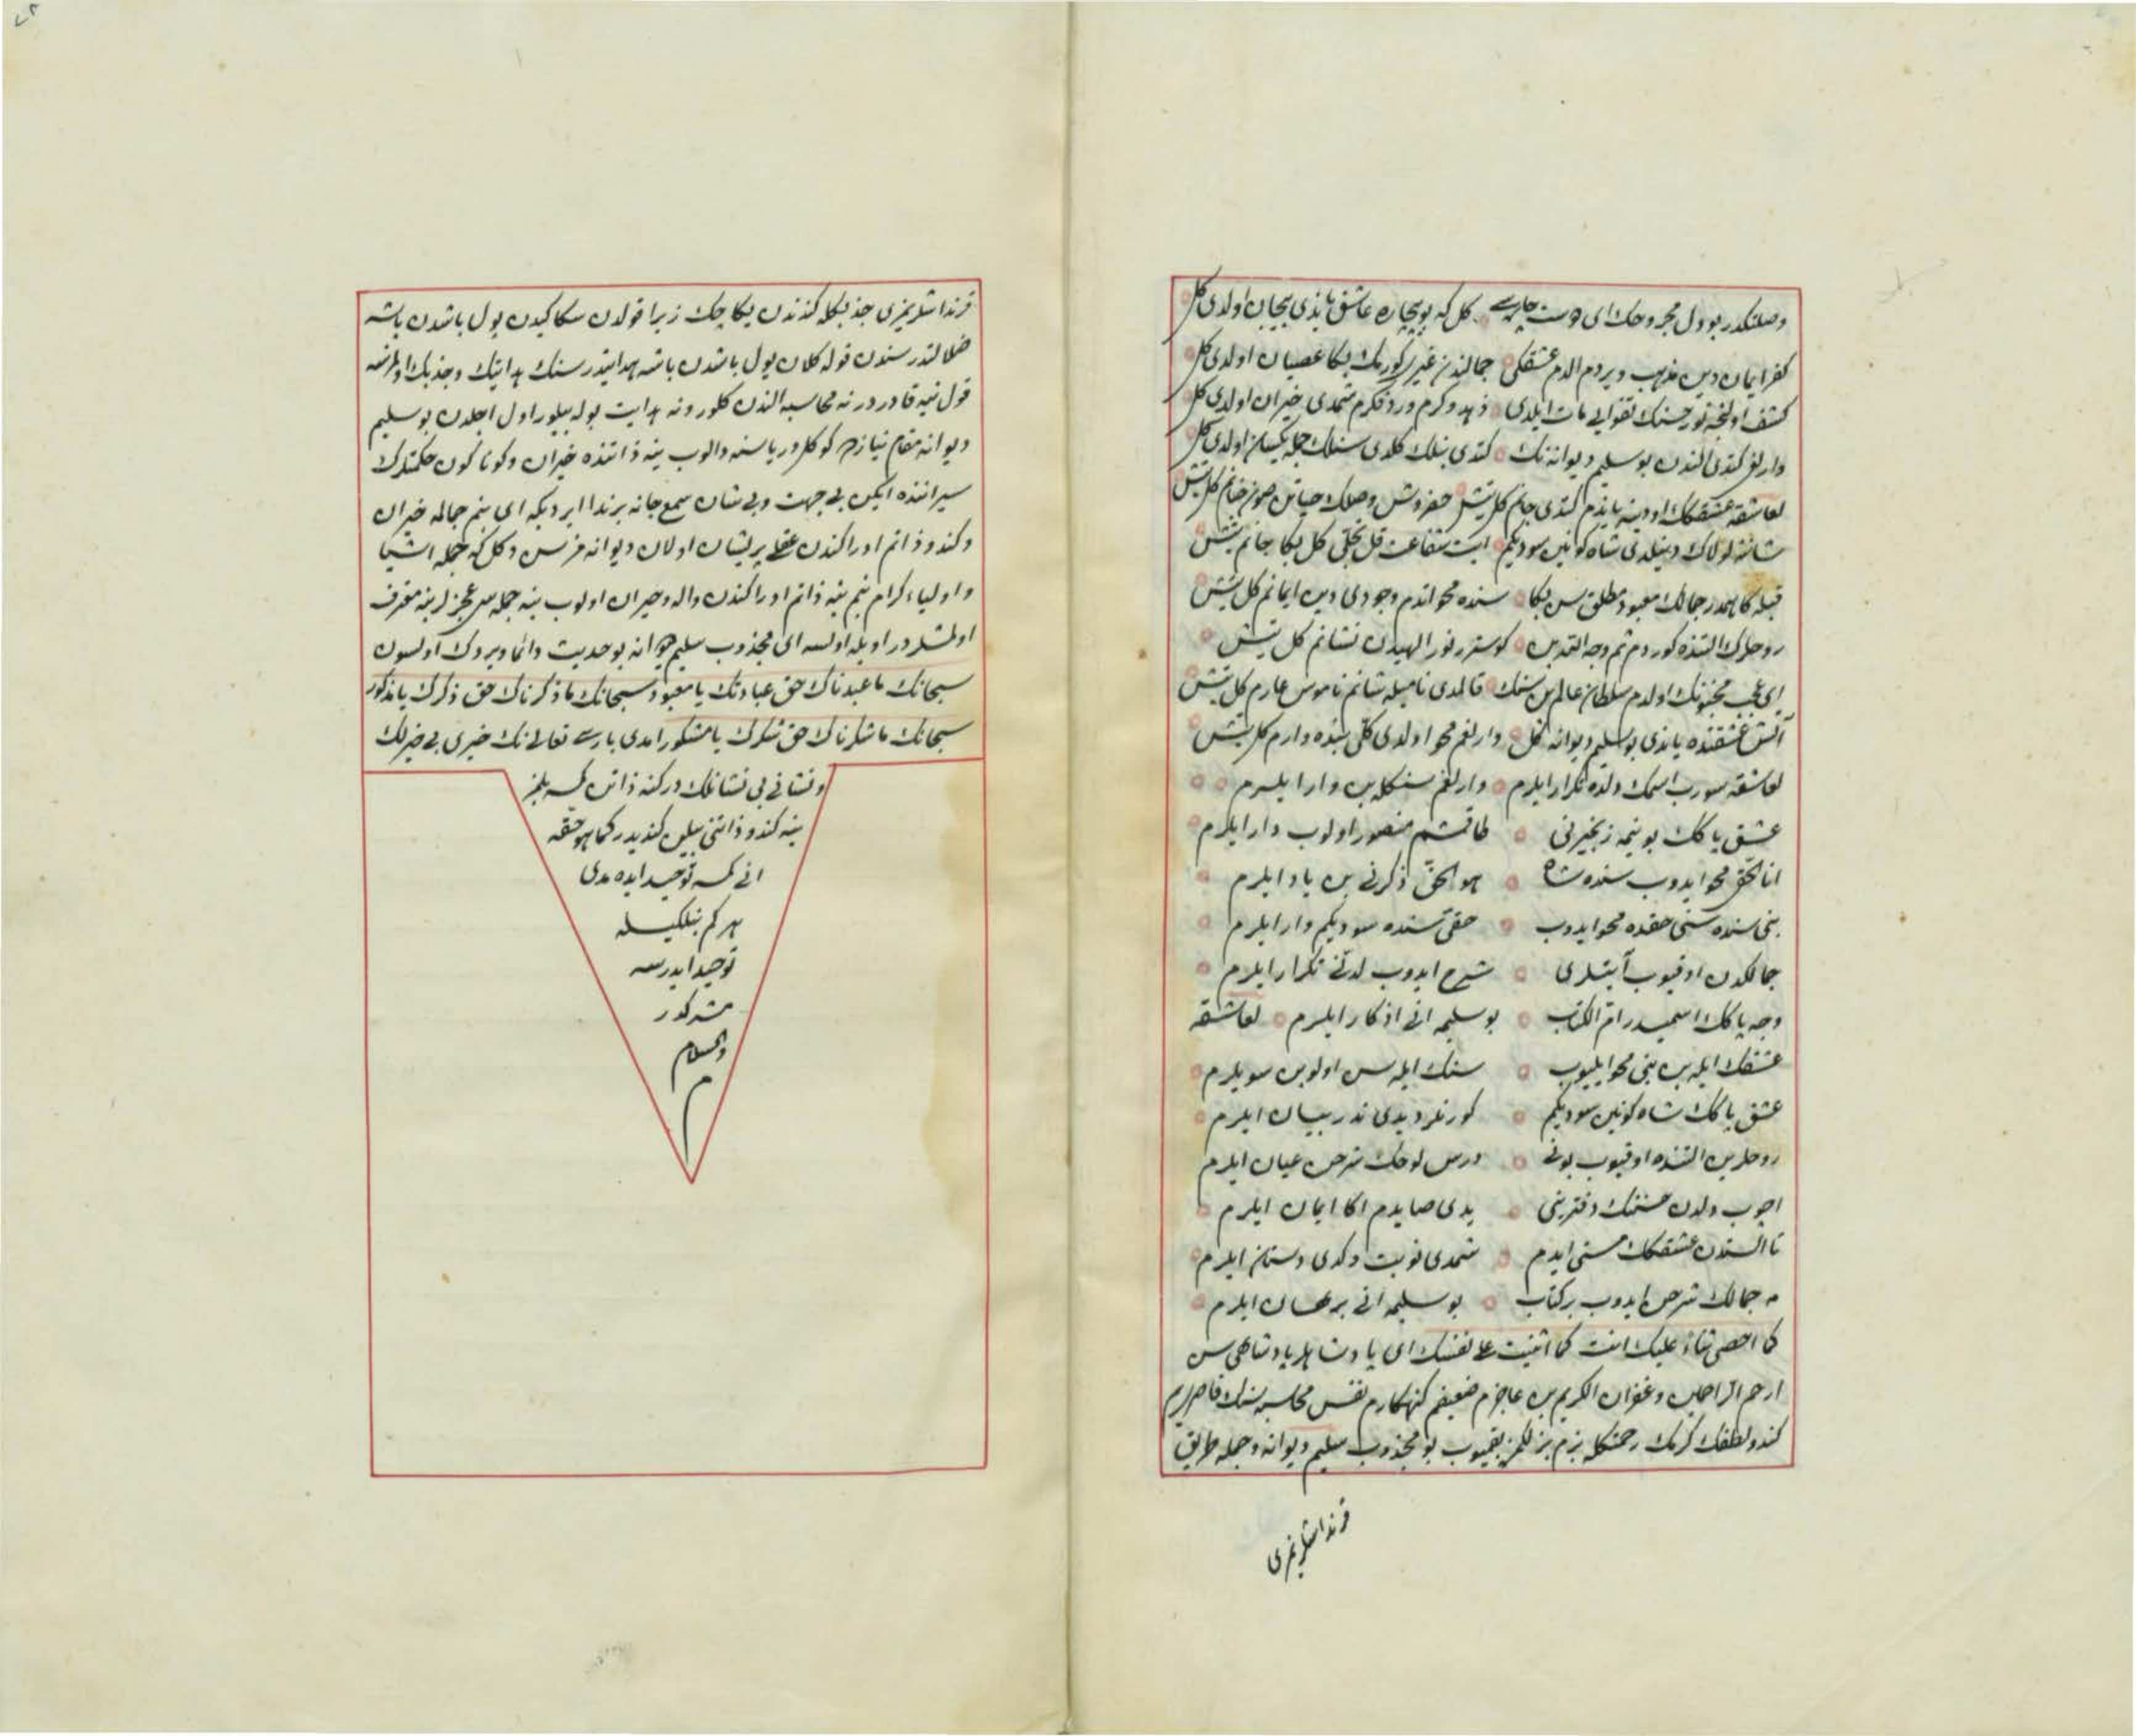 وصلتكدر بو دل مجروحك ای دوست چاره سی كل كه بو بیچاره عاشق یاندی بیجان اولدی كل
كفر ایمان دین مذهب ویردم الدم عشقكی جمالندن غیری كورمك بكا عصیان اولدی كل
كشف اولنجه نور حسنك تقوایی مات ایلدی زهد وكرم ورد فكرم شمدی حیران اولدی كل
وارلغم كتدی الندن بو سلیم دیوانه نك كتدی بنلك كلدی سنلك جمله یكسان اولدی كل
لعاشقه عشقكك اودینه یاندم كتدی جانم كل یتیش وصلك حیاتن جانم كل یتیش
شاننه لولاك دینلدی شاه كونین سودیكم ایت شفاعت قل تجلی كل بكا جانم یتیش
قبله كاهمدر جمالك معبود مطلق سن بكا سنده محو اتدم وجودی دین ایمانم كل یتیش
روحلرك التنده كوردم ثم وجه الله بن كوستر نور الهیدن نشانم كل یتیش
ای عجب مجنونك اولدم سلطان عالم سنك قالمدی نامیله شانم ناموس عارم كل یتیش
آتش عشقنده یاندی بو سلیم دیوانه كل وارلغم محو اولدی كلی سنده وارم كل یتیش
لعاشقه سورب اسمك دلده تكرار ایلرم وارلغم سنكله بن وار ایلرم
عشق پاكك بوینمه زنجیرنی طاقمشم منصور اولوب دار ایلرم
انا الحق محو ایدوب سنده شاه هو الحق ذكرنی بن یاد ایلرم
بنی سنده سنی حقده محو ایدوب حقی سنده سودیكم وار ایلرم
جمالكدن اوقیوب آیتلری شرح ایدوب لدنی تكرار ایلرم
وجه پاكك اسمیدر ام الكتاب بو سلیمه انی اذكار ایلرم لعاشقه
عشقك ایله بن بنی محو ایلیوب سنك ایله سن اولوبن سویلرم
عشق پاكك شاه كونین سودیكم كورنلر دیدی ندر بیان ایلرم
روحلرین التنده اوقیوب بونی درس لوحك شرحن عیان ایلرم
اچوب دلدن حسنك دفترینی یدی اكا ایمان ایلرم
تا الستدن عشقكك مستی ایدم شمدی نوبت دكدی دستان ایلرم
جمالك شرحن ایدوب بر كتاب بو سلیمه انی برهان ایلرم
لا احصی ثناء علیك انت كما اثنیت علی نفسك ای پادشاهلر پادشاهی سن
ارحم الراحمین وغفران الكریم بن عاجزم ضعیفم كنهكارم نفس محاسبه سندن قاصریم
كندو لطفك كرمك رحمتكله بزم بزلكمز بقمیوب بو مجذوب سلیم دیوانه وجمله طریق
قرنداشلریمزی
قرنداشلریمزی جذبكله كندندن یكا چك زیرا قولدن سكا كیدن یول باشدن باشه
ضلالتدر سندن قوله كلان یول باشدن باشه هدایتدر سنك هدایتك وجذبك اولمزسه
قول نیه قادردر نه محاسبه الندن كلور ونه هدایت یوله بیلور اول اجلدن بو سلیم
دیوانه مقام نیازده كوكلی دریاسنه دالوب ینه ذاتنده حیران وكوناكون حكمتلرك
سیراننده ایكن بی جهت وبی نشان سمع جانه بر ندا ایردیكه ای بنم جماله حیران
وكندو ذاتم ادراكندن عقلی پریشان اولان دیوانه مز سن دكل كه جمله انبیا
واولیاء كرام بنم ینه ذاتم ادراكندن واله وحیران اولوب ینه جمله سی عجزلرینه معترف
اولمشلردر اویله اولسه ای مجذوب سلیم دیوانه بو حدیث دائما ویردك اولسون
سبحانك ما عبدناك حق عبادتك یا معبود سبحانك ما ذكرناك حق ذكرك یا مذكور
سبحانك ما شكرناك حق شكرك یا مشكور امدی باری تعالی نك خبری بی خبرلك
ونشانی بی نشانلك در كنه ذاتن كمسه بلمز
ینه كندو ذاتنی بیلن كندیدر كما هو حقه
انی كمسه توحید ایده مدی
هر كم بنلكیله
توحید ایدرسه
مشركدر
والسلام
م